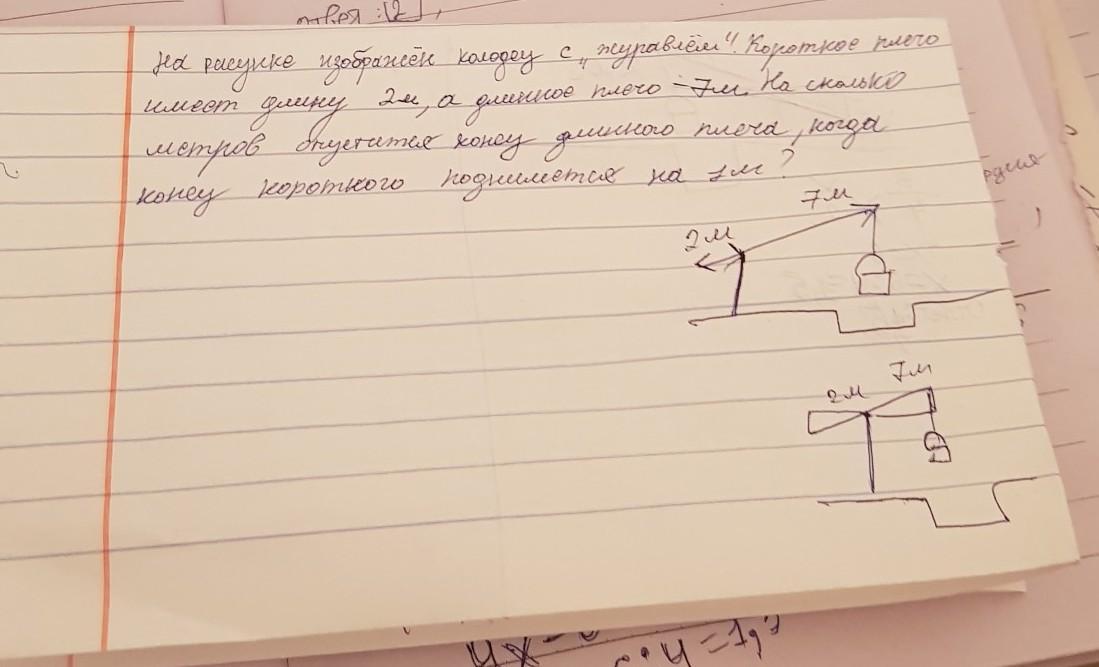 ответ: 2
На рисунке изображён колодец с „журавлём“. Короткое плечо
имеет длину 2м, а длинное плечо – 7м. На сколько
метров опустится конец длинного плеча, когда
конец короткого поднимется на 1м?
7м
2м
7м
2м